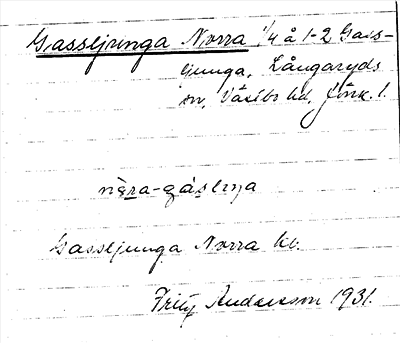 Gassljunga Norra 1/4 å 1-2 Gass-
ljunga, Långaryds
sn, Västbo hd, Jönk. l.
nɛ̀ra-gásliŋa
Gassljunga Norra kv.
Fritz Andersson 1931.